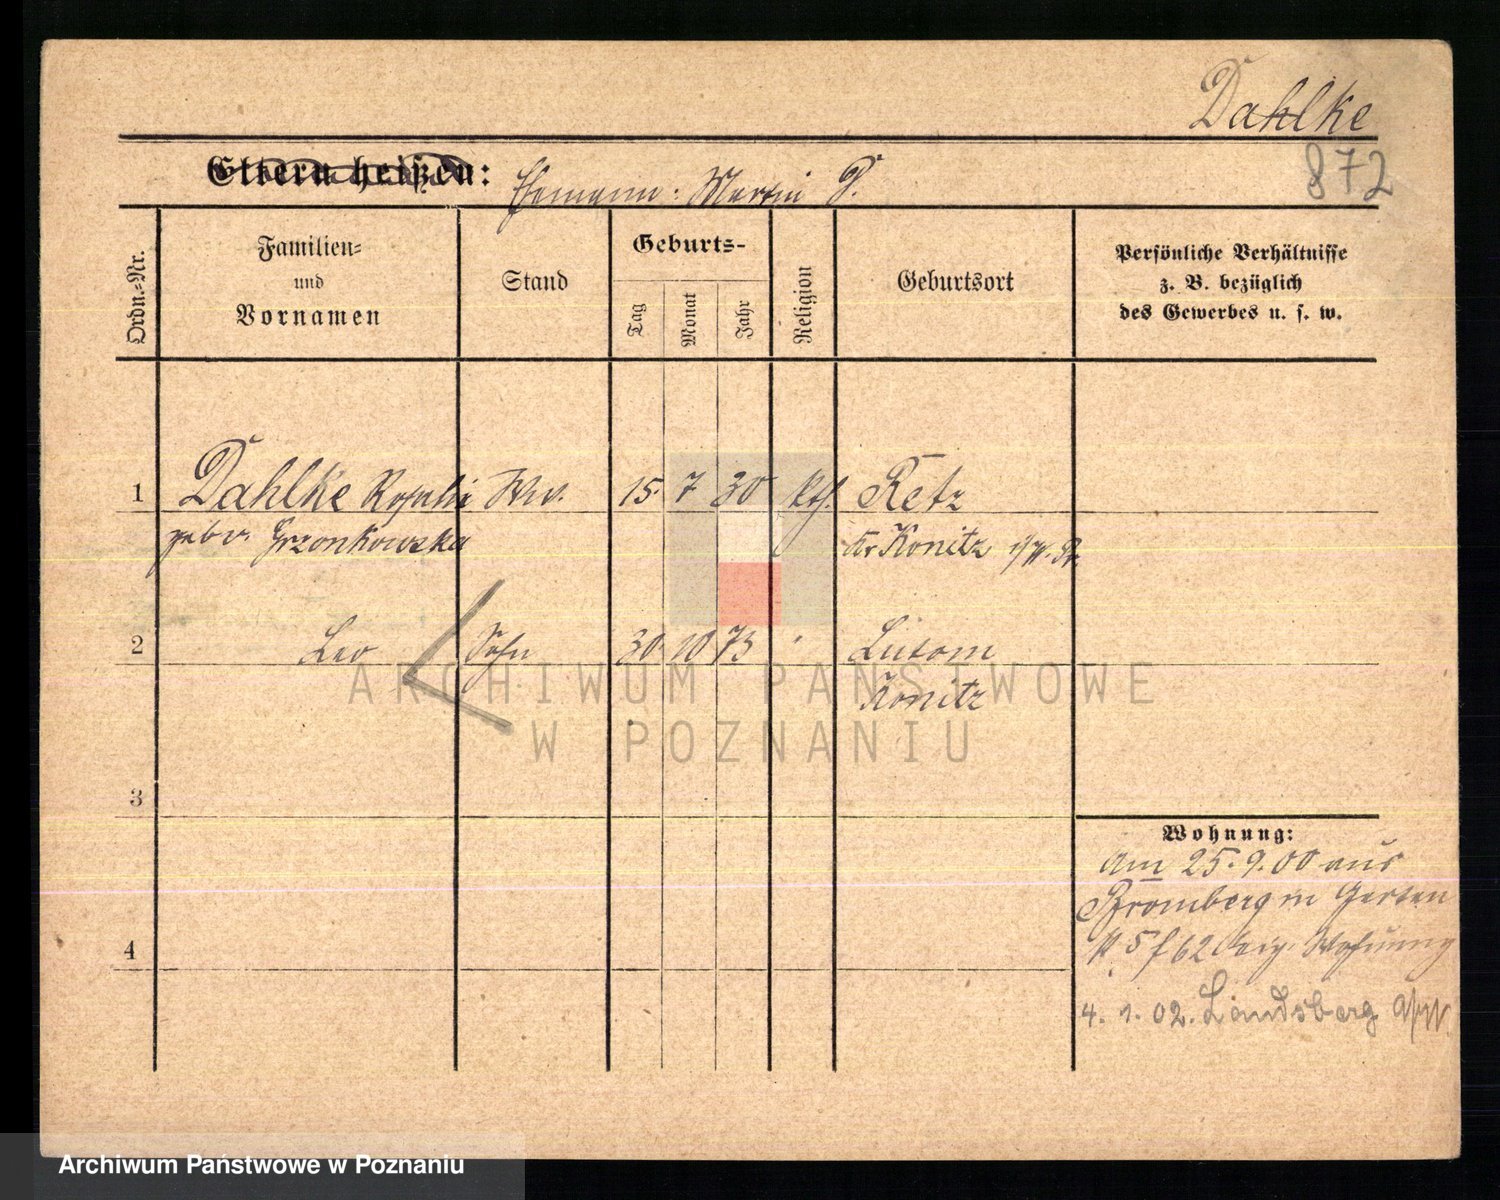 Dahlke
872
Eltern heißen: Ehemann: Martin D.
Ordn.-Nr.
Familien-
und
Vornamen
Stand
Geburts-
Tag
Monat
Jahr
Religion
Geburtsort
Persönliche Verhältnisse
z. B. bezüglich
des Gewerbes u. s. w.
1 Dahlke Rosalie Ww. 15. 7 30 kth. Retz
gebr. Grzonkowska Kr Konitz i/W. Pr.
2 Leo Sohn 30. 10 73 Lutom
Konitz
3
4
Wohnung:
Am 25. 9. 00 aus
Bromberg in Gerten
5 Wohnung
4. 1. 02. Landsberg a/W.
ARCHIWUM PAŃSTWOWE
W POZNANIU
Archiwum Państwowe w Poznaniu